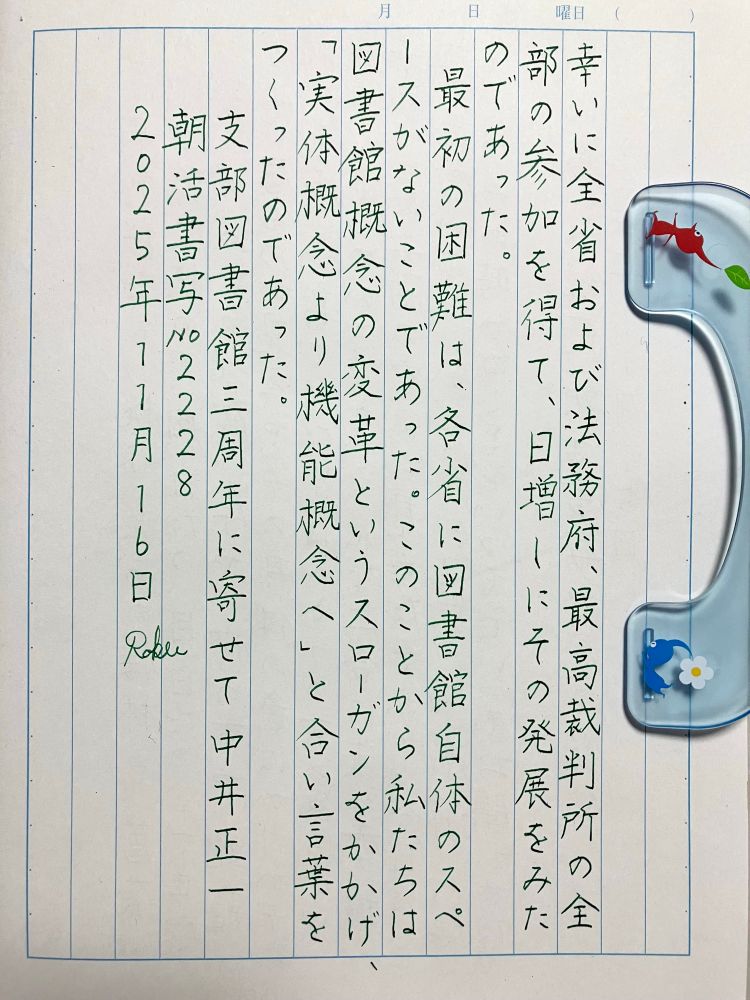 月 日 曜日 ( )
幸いに全省および法務府、最高裁判所の全
部の参加を得て、日増しにその発展をみた
のであった。
最初の困難は、各省に図書館自体のスペ
ースがないことであった。このことから私たちは
図書館概念の変革というスローガンをかかげ
「実体概念より機能概念へ」と合い言葉を
つくったのであった。
支部図書館三周年に寄せて 中井正一
朝活書写No2228
2025年11月16日 Roku